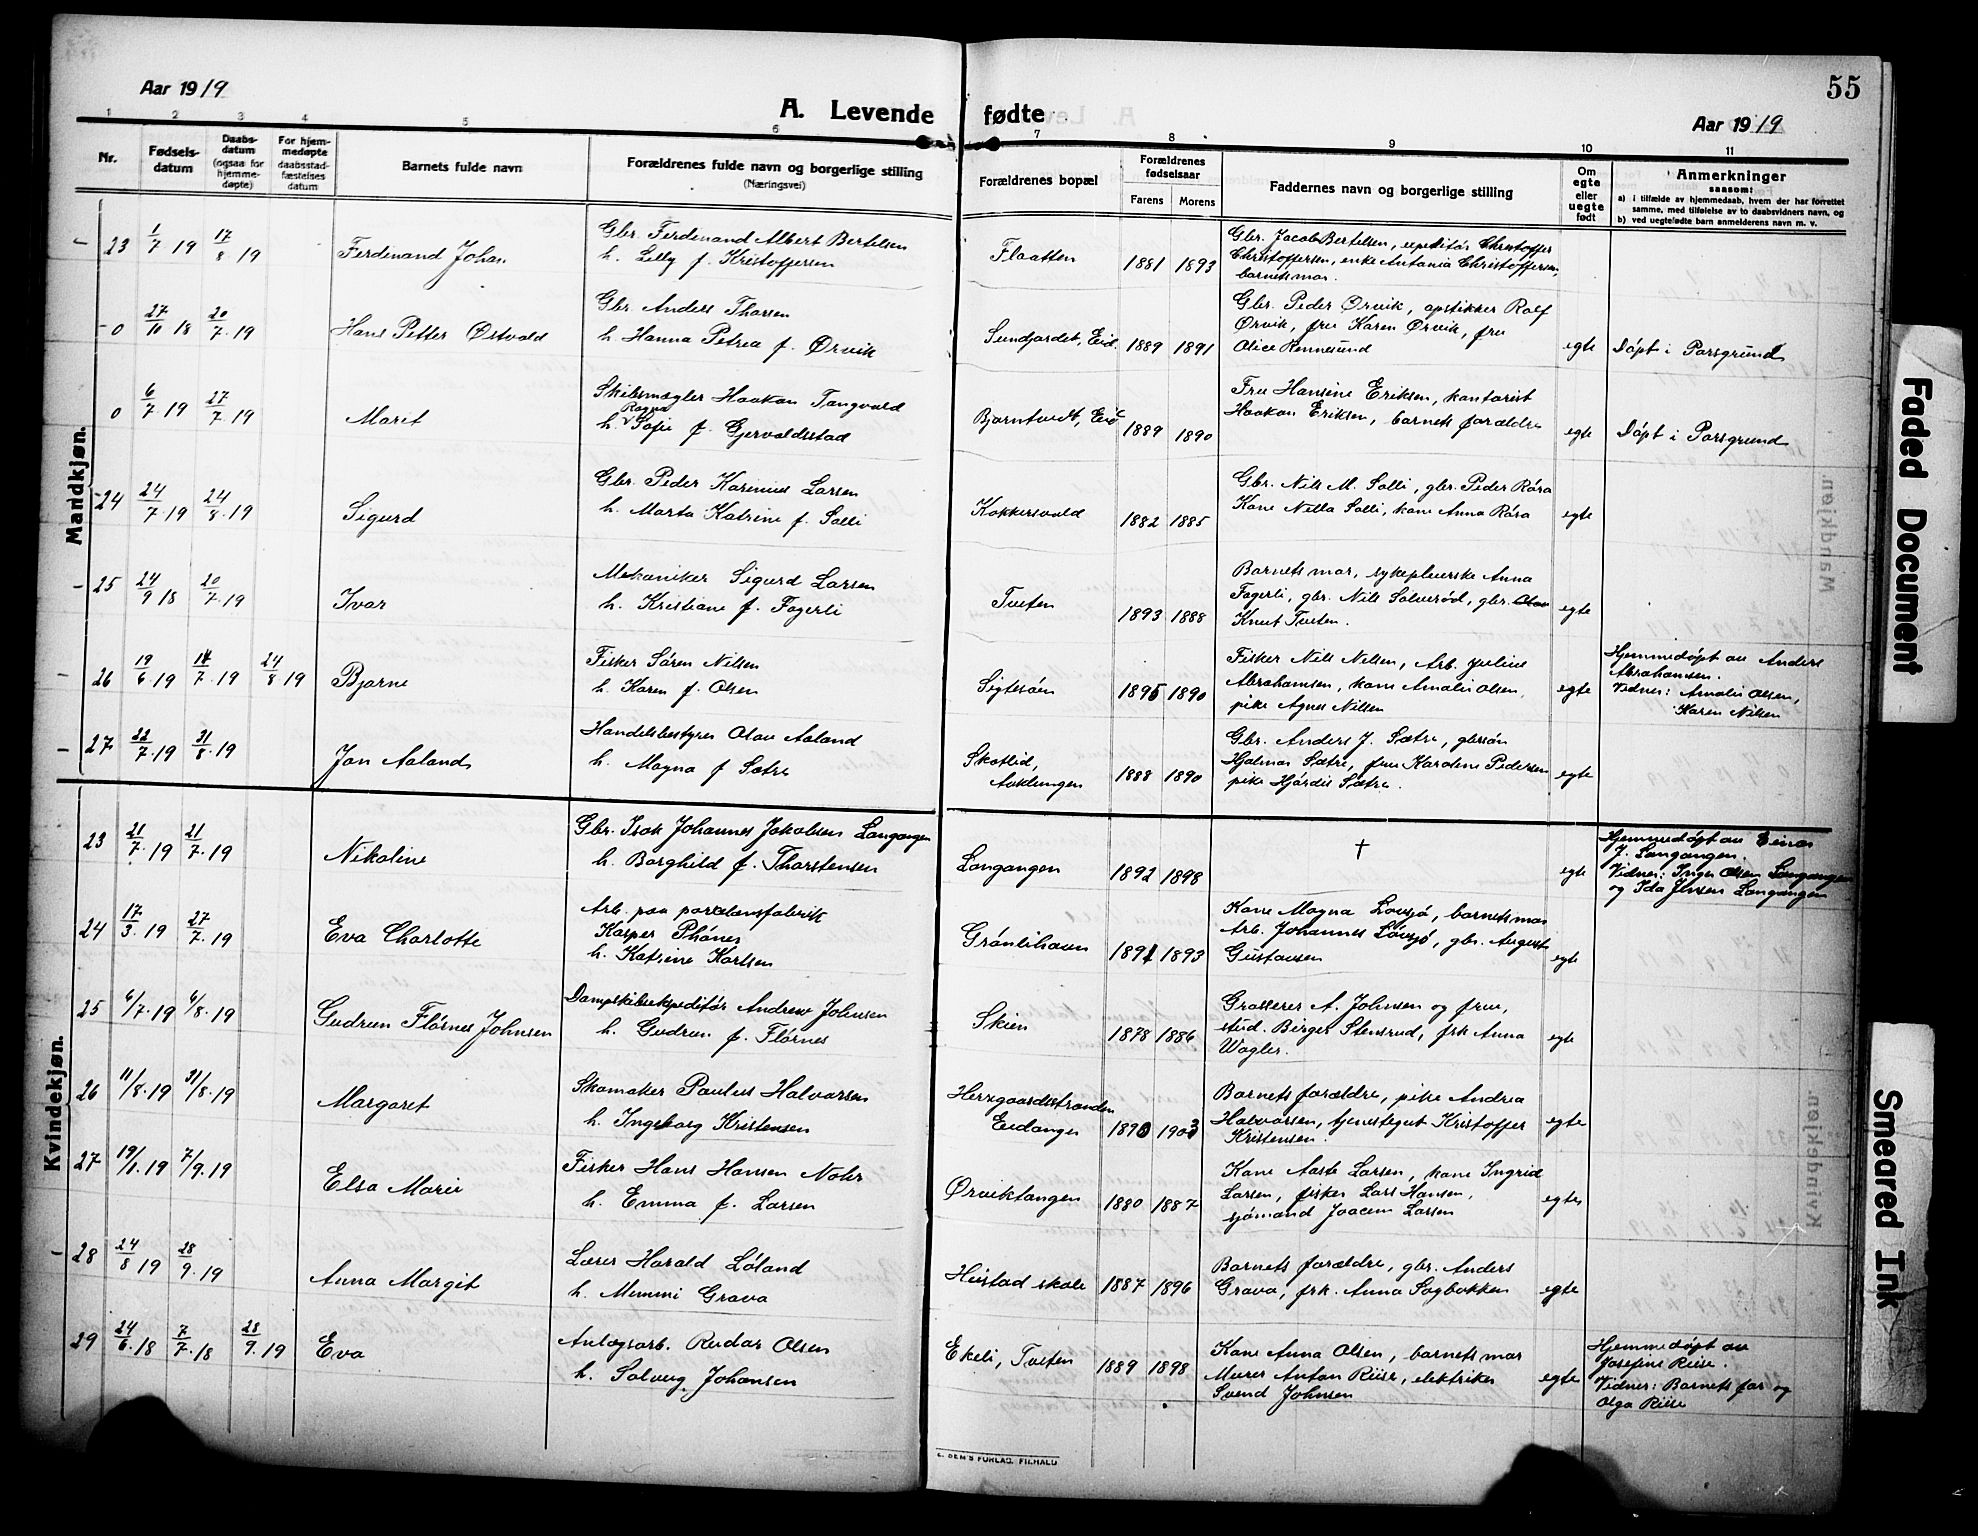 Aar 1919
A. Levende fødte
Aar 1919
55
1 2 3 4 5 6 7 8 9 10 11
Nr.
Fødsels-
datum
Daabs-
datum
(ogsaa for
hjemme-
døpte)
For hjem-
medøpte
daabsstad-
fæstelses
datum
Barnets fulde navn
Forældrenes fulde navn og borgerlige stilling
(Næringsvei)
Forældrenes bopæl
Forældrenes
fødselsaar
Farens Morens
Faddernes navn og borgerlige stilling
Om
egte
eller
uegte
født
Anmerkninger
saasom:
a) i tilfælde av hjemmedaab, hvem der har forrettet
samme, med tilføielse av to daabsvidners navn, og
b) ved uegtefødte barn anmelderens navn m. v.
Mandkjøn.
23 1/7 19 17/8 19 Ferdinand Johan
Gbr. Ferdinand Albert Bertelsen
h. Lelly f. Kristoffersen
Flaatten 1881 1893
Gbr. Jacob Bertelsen, repetitør Christoffer
Christoffersen, enke Antonia Christoffersen,
barnets mor.
0 27/10 18 20/7 19 Hans Petter Østvald
Gbr. Anders Thorsen
h. Hanna Petrea f. Ørvik
Sundjordet, Eid. 1889 1891
Gbr. Peder Ørvik, optikker Rolf
Ørvik, fru Karen Ørvik, fru
Alice Rennesund
egte Døpt i Porsgrund
0 6/7 19 27/7 19 Marit
Skibsmægler Haakon Tangvald
Ragna
h. Sofie f. Gjervaldsstad
Bjørntvedt, Eid 1889 1890
Fru Hansine Eriksen, kontorist
Haakon Eriksen, barnets forældre
egte Døpt i Porsgrund
24 24/7 19 24/8 19 Sigurd
Gbr. Peder Karinius Larsen
h. Marta Katrine f. Solli
Kokkersvold 1882 1885
Gbr. Nils M. Solli, gbr. Peder Røra
Kone Nilla Solli, kone Anna Røra
egte
25 24/9 18 20/7 19 Ivar
Mekaniker Sigurd Larsen
h. Kristiane f. Fagerli
Tveten 1893 1888
Barnets mor, sykepleierske Anna
Fagerli, gbr. Nils Solverød, gbr. Olav
Knut Tveten.
egte
26 19/6 19 14/7 19 24/8 19 Bjarne
Fisker Søren Nilsen
h. Karen f. Olsen
Sigtesøen 1895 1890
Fisker Nils Nilsen, Arb. Julius
Abrahamsen, kone Amalie Olsen,
pike Agnes Nilsen
egte
Hjemmedøpt av Anders
Abrahamsen.
Vidner: Amalie Olsen,
Karen Nilsen
27 22/7 19 31/8 19 Jan Aaland
Handelsbestyrer Olav Aaland
h. Magna f Sætre
Skotlid,
Aaklungen 1888 1890
Gbr. Anders J. Sætre, gbrsøn
Hjalmar Sætre, frue Karoline Pedersen
pike Hjørdis Sætre.
egte
Kvindekjøn.
23 21/7 19 21/7 19 Nikoline
Gbr. Isak Johannes Jakobsen Langangen
h. Borghild f. Thorstensen
Langangen 1892 1898
†
egte
Hjemmedøpt av Einar
J. Langangen.
Vidner: Inger Olsen Langangen
og Ida Jensen Langangen
24 17/3 19 27/7 19 Eva Charlotte
Arb. paa porcelænsfabrik
Kasper Phønes
h. Katrine Karlsen
Grønlihaven 1891 1893
Kone Magna Løvsjø, barnets mor
Arb. Johannes Løvsjø, gbr. August
Gustavsen
egte
25 6/7 19 6/8 19 Gudrun Flørnes Johnsen
Dampskibsekspeditør Andrew Johnsen
h. Gudrun f. Flørnes
Skien 1878 1886
Grosserer A. Johnsen og frue,
stud. Birger Stensrud, frk Anna
Wogler.
egte
26 11/8 19 31/8 19 Margaret
Skomaker Paulus Halvorsen
h. Ingeborg Kristensen
Herregaardsstranden
Eidanger 1890 1903
Barnets forældre, pike Andrea
Halvorsen, tjenestegut Kristoffer
Kristensen.
egte
27 19/1 19 7/9 19 Elsa Marie
Fisker Hans Hansen Nohr
h. Emma f. Larsen
Ørviktangen 1880 1887
Kone Aaste Larsen, kone Ingrid
Larsen, fisker Lars Hansen,
sjømand Joacim Larsen
egte
28 24/8 19 28/9 19 Anna Margit
Lærer Harald Løland
h. Mimmi Grava
Heistad skole 1887 1896
Barnets forældre, gbr. Anders
Grava, frk. Anna Sagbakken
egte
29 24/6 18 7/7 18 28/9 19 Eva
Anlægsarb. Reidar Olsen
h. Solveig Johansen
Ekeli, Tveten 1889 1898
Kone Anna Olsen, barnets mor
Murer Anton Riise, elektriker
Svend Johnsen
egte
Hjemmedøpt av
Josefine Riise.
Vidner: Barnets far og
Olga Riise
Faded Document
Smeared Ink